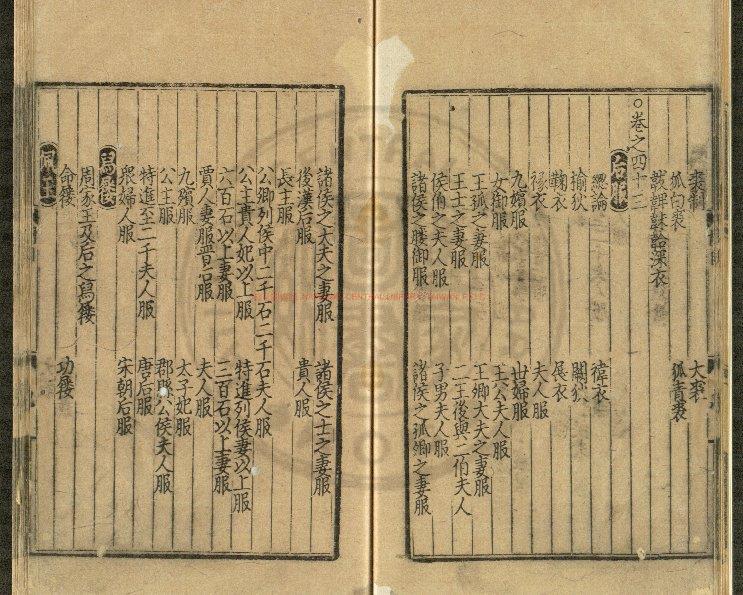 裘制
大裘
狐白裘
狐青裘
韎韐深衣
○卷之四十三
后服
總論
褘衣
揄狄
闕狄
鞠衣
展衣
褖衣
夫人服
九嬪服
世婦服
女御服
三公夫人服
王孤之妻服
王卿大夫之妻服
王士之妻服
二王後與二伯夫人
侯伯之夫人服
子男夫人服
諸侯之媵御服
諸侯之孤卿之妻服
諸侯之大夫之妻服
諸侯之士之妻服
後漢后服
貴人服
長主服
公卿列侯中二千石二千石夫人服
公主貴人妃以上服
特進列侯妻以上服
六百石以上妻服
三百石以上妻服
賈人妻服晉后服
夫人服
九嬪服
太子妃服
公主服
郡縣公侯夫人服
特進至二千夫人服
唐后服
眾婦人服
宋朝后服
舄屨
周家王及后之舄屨
命屨
功屨